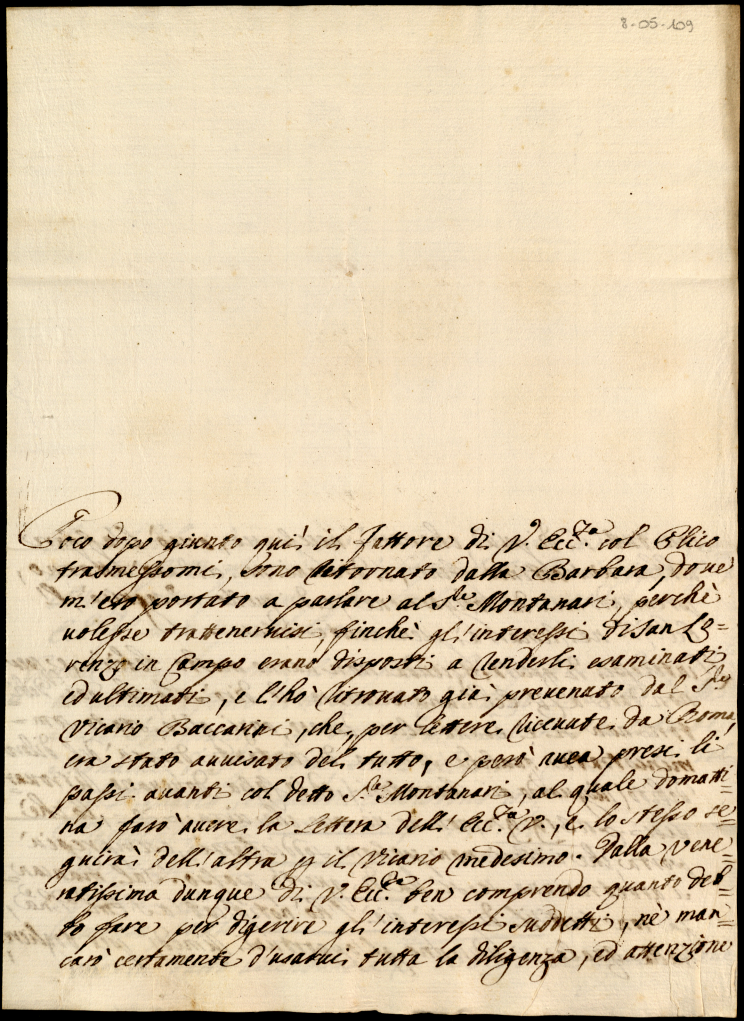 8-05-109
Poco dopo giunto quì il Fattore di V. Ecc.za col Plico
trasmessomi, sono ritornato dalla Barbara, dove
m'ero portato a parlare al S.re Montanari, perchè
volesse trattenervisi, finchè gl'interessi di San Lo-
renzo in Campo erano disposti a renderli esaminati
ed ultimati, e l'hò ritrovato già prevenuto dal Sig.r
Vicario Baccarini, che, per lettere ricevute da Roma,
era stato avvisato del tutto, e però avea presi li
passi avanti col detto S.re Montanari, al quale domatti-
na farò avere la Lettera dell'Ecc.za V., e lo stesso se-
guirà dell'altra p il Vicario medesimo. Dalla vene-
ratissima dunque di V. Ecc.za ben comprendo quanto deb-
bo fare per digerire gl'interessi suddetti, nè man-
carò certamente d'usarvi tutta la diligenza, ed attenzione